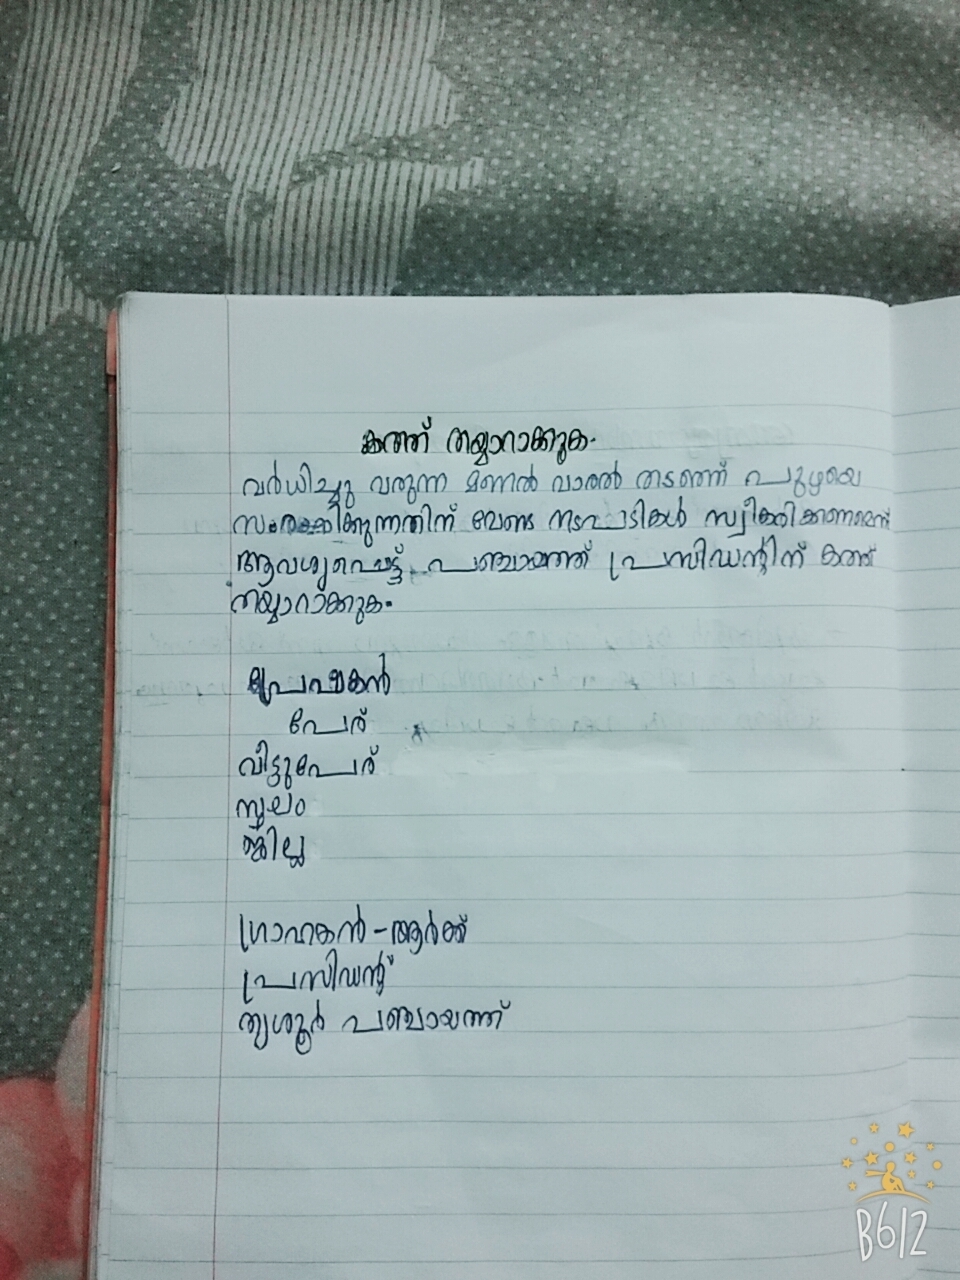 കത്ത് തയ്യാറാക്കുക.
വർധിച്ചു വരുന്ന മണൽ വാരൽ തടഞ്ഞ് പുഴയെ
സംരക്ഷിക്കുന്നതിന് വേണ്ട നടപടികൾ സ്വീകരിക്കണമെന്ന്
ആവശ്യപ്പെട്ട് പഞ്ചായത്ത് പ്രസിഡന്റിന് കത്ത്
തയ്യാറാക്കുക.
പ്രേഷകൻ
പേര്
വീട്ടുപേര്
സ്ഥലം
ജില്ല
ഗ്രാഹകൻ - ആർക്ക്
പ്രസിഡന്റ്
തൃശൂർ പഞ്ചായത്ത്
B612